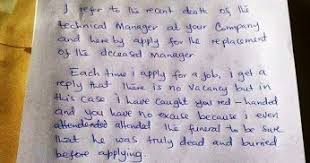 I refer to the recent death of the
Technical Manager at your Company
and hereby apply for the replacement
of the deceased Manager
Each time i apply for a job, i get a
reply that there is no vacancy but in
this case i have caught you red-handed
and you have no excuse because i even
attendended attended the funeral to be sure
that he was truly dead and buried
before applying.